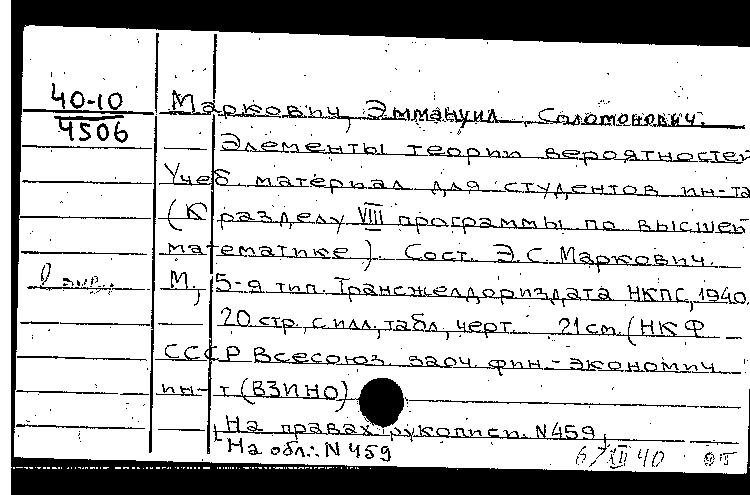 40-10
4506
Маркович, Эммануил Соломонович.
Элементы теории вероятностей
Учеб. материал для студентов ин-та
(К разделу VIII программы по высшей
математике). Сост. Э.С. Маркович.
М., 5-я тип. Трансжелдориздата НКПС, 1940.
20 стр., с илл., табл., черт. 21 см. (НКФ
СССР Всесоюз. заоч. фин.-экономич.
ин-т (ВЗИНО)
На правах рукописи. N459,
На обл.: N 459
6/XII 40